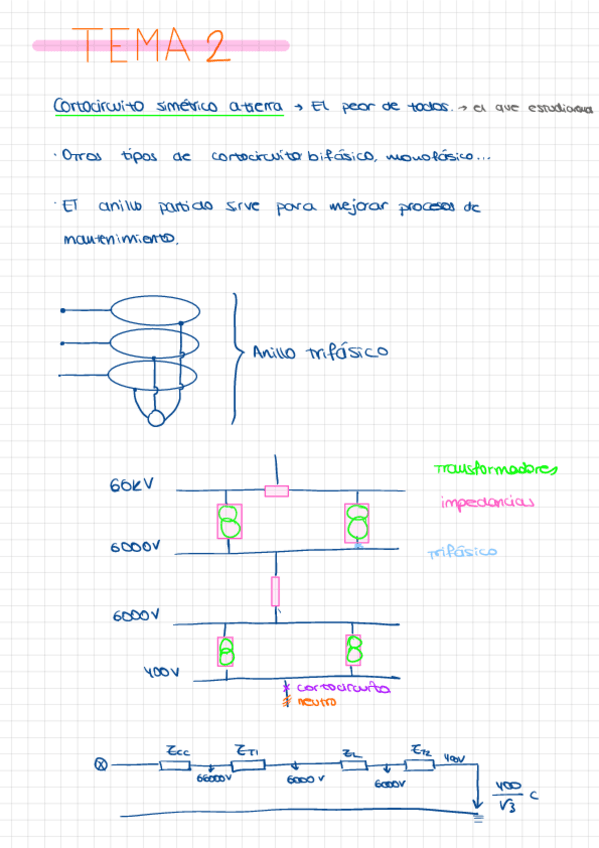 TEMA 2
Cortocircuito simétrico a tierra → El peor de todos. → el que estudiaremos
· Otros tipos de cortocircuito bifásico, monofásico...
· El anillo partido sirve para mejorar procesos de
mantenimiento.
Anillo trifásico
Transformadores
66kV
impedancias
6000V
trifásico
6000V
400V
cortocircuito
neutro
Zcc
ZT1
ZL
ZT2
400V
66000V
6000V
6000V
400
√3
C